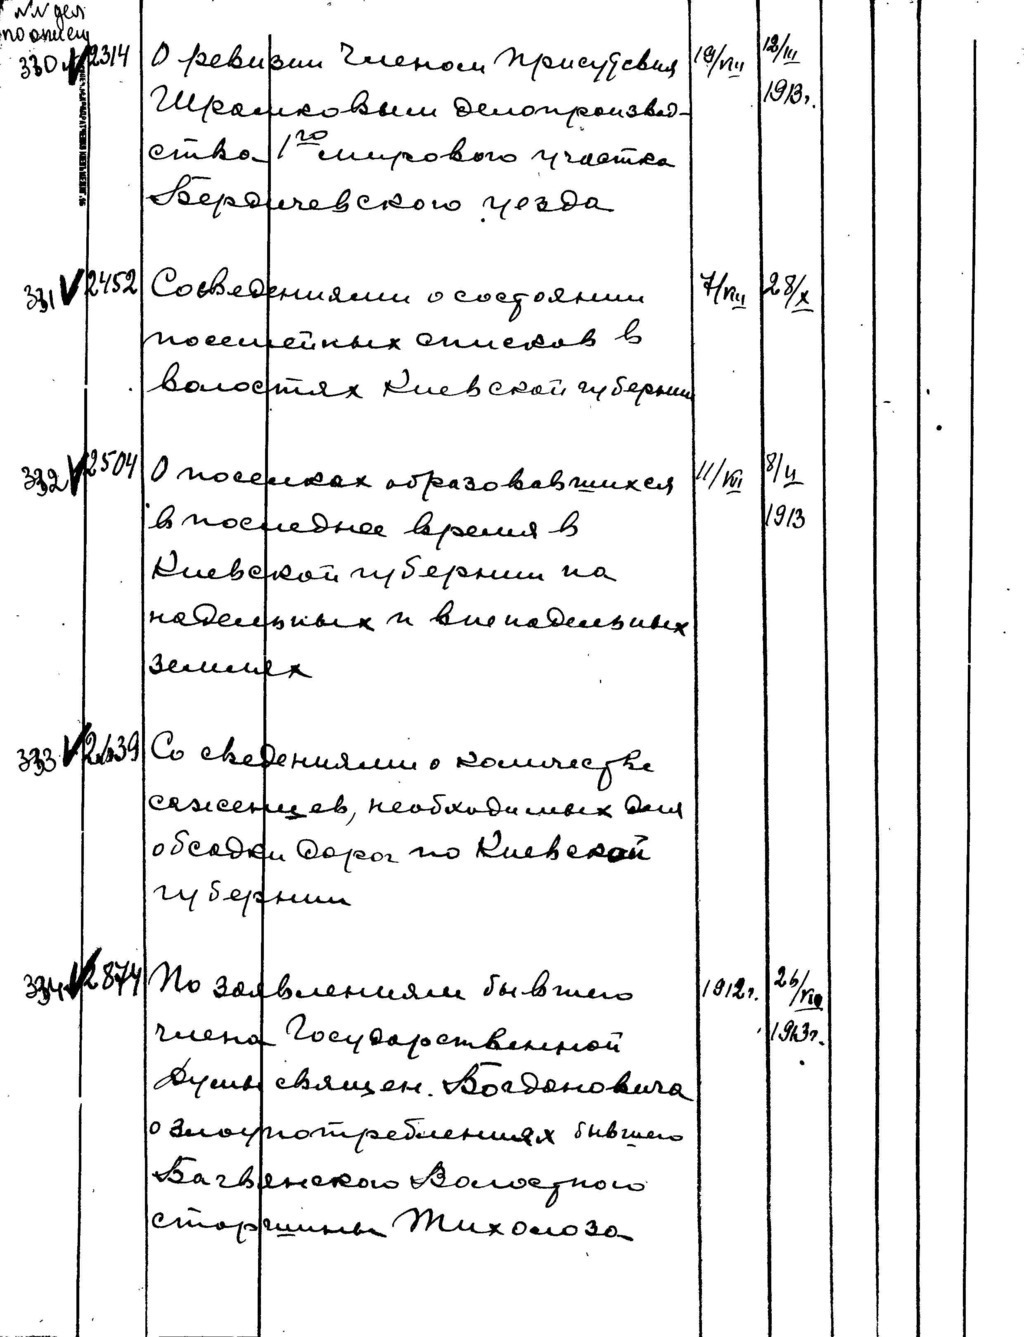 №№ дел
по описи
330 2314 О ревизии Членом Присутствия 19/VIII 12/III
Шрамковым делопроизвод- 1913г.
ства 1го мирового участка
Бердичевского уезда
331 2452 Со сведениями о состоянии 7/VIII 28/X
посемейных списков в
волостях Киевской губернии
332 2504 О поселках образовавшихся 11/VII 8/II
в последнее время в 1913
Киевской губернии на
надельных и вненадельных
землях
333 2639 Со сведениями о количестве
саженцев, необходимых для
обсадки дорог по Киевской
губернии
334 2874 По заявлениям бывшего 1912г. 26/VIII
члена Государственной 1913г.
Думы священ. Богдановича
о злоупотреблениях бывшего
Багвянского Волостного
старшины Тихолоза